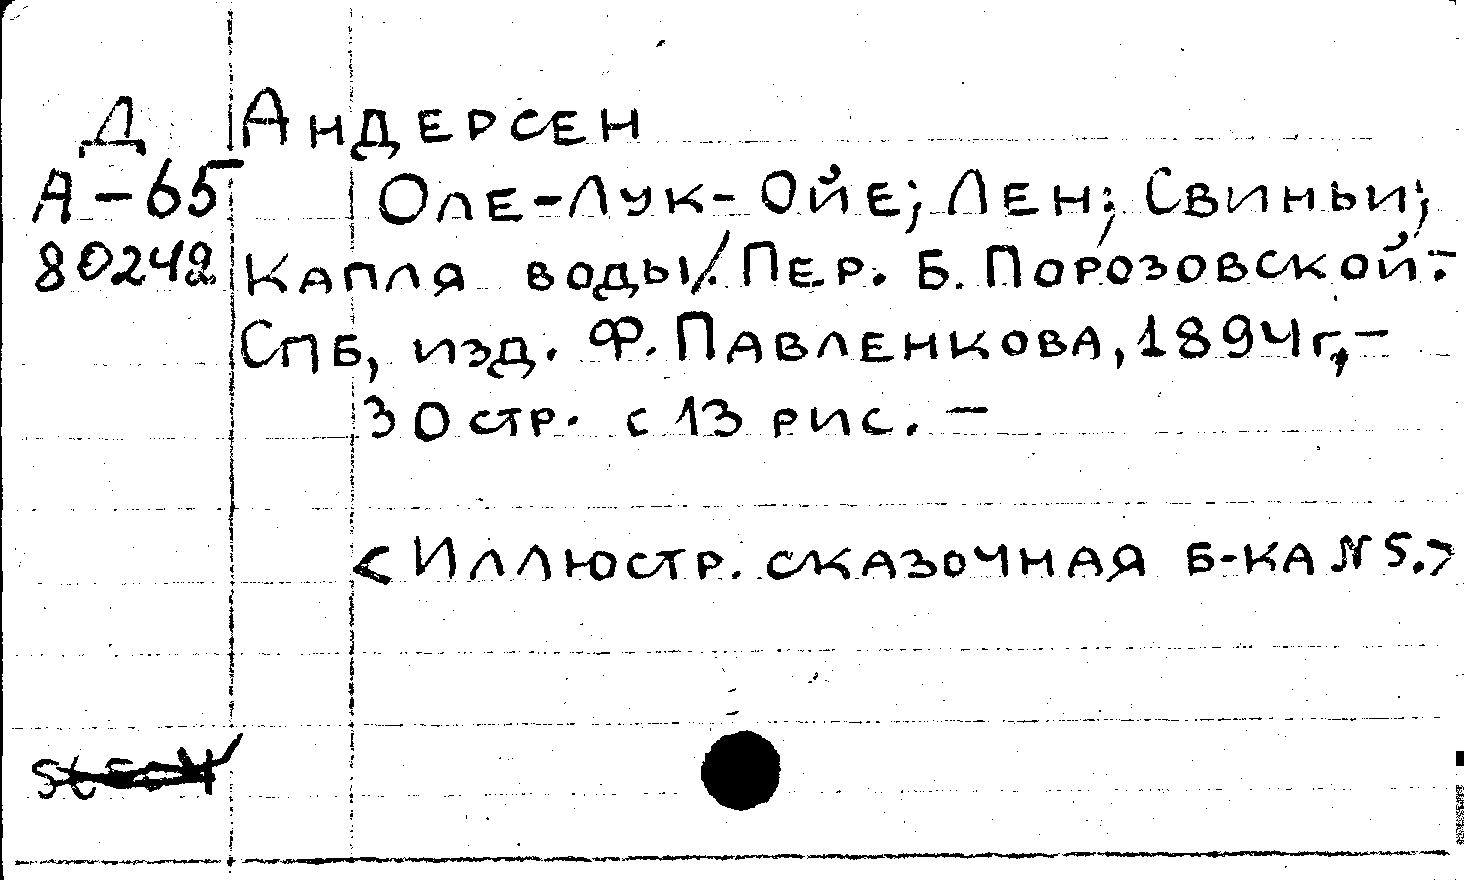 Д Андерсен
А-65 Оле-Лук-Ойе; Лен; Свиньи;
80242 Капля воды/. Пер. Б. Порозовской.-
СПБ, изд. Ф. Павленкова, 1894г,-
30 стр. с 13 рис. -
<Иллюстр. сказочная б-ка N 5.>